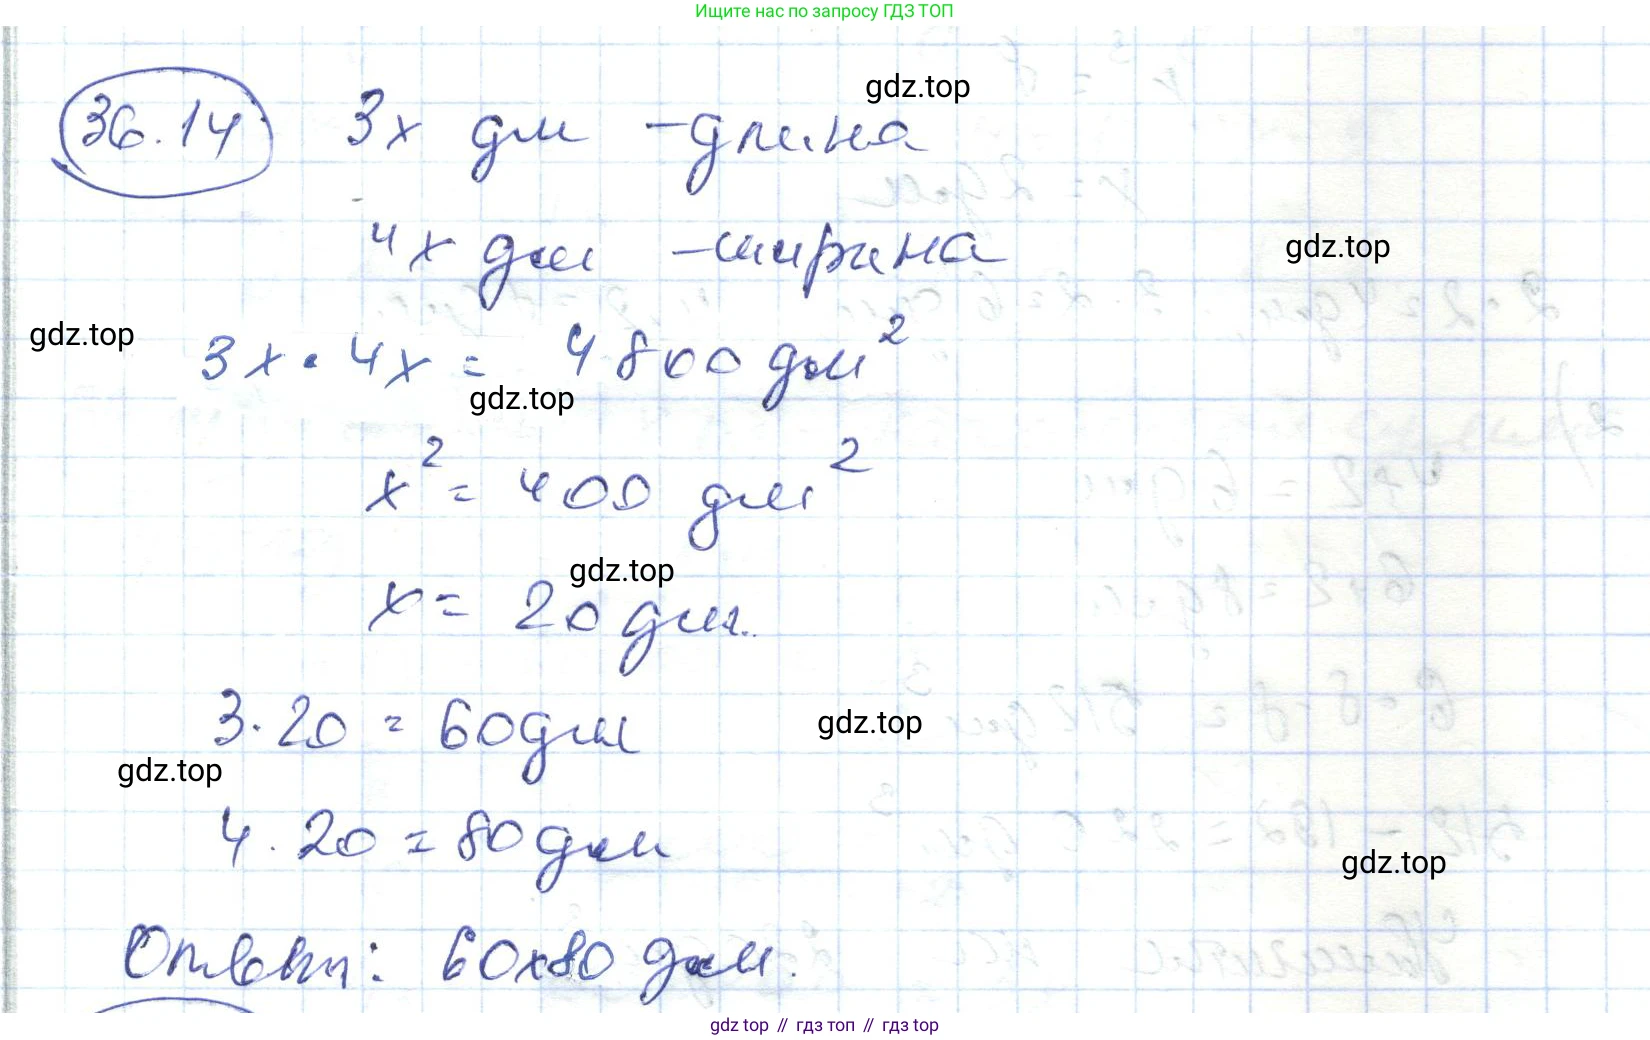 Ищите нас по запросу ГДЗ ТОП
36.14 3x дм – длина
gdz.top
4x дм – ширина
gdz.top
gdz.top
3x · 4x = 4800 дм²
gdz.top
x² = 400 дм²
gdz.top
x = 20 дм.
3 · 20 = 60 дм
gdz.top
gdz.top
4 · 20 = 80 дм
gdz.top
Ответ: 60x80 дм.
gdz.top // гдз топ // гдз top